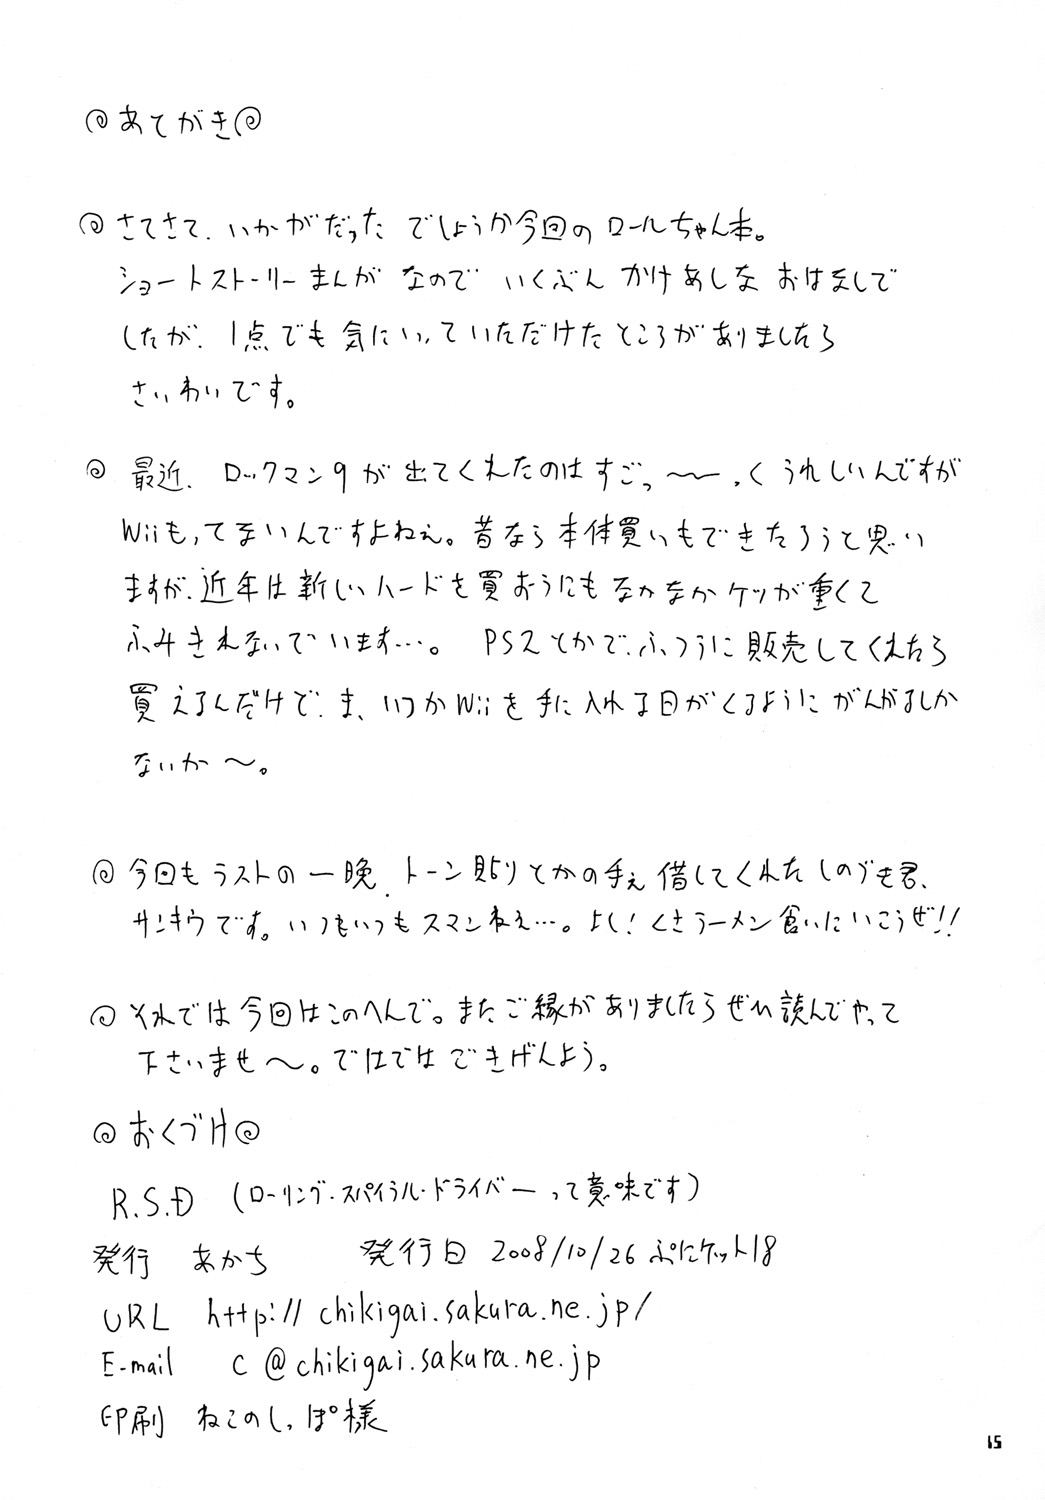 あとがき
さてさて、いかがだったでしょうか今回のロールちゃん本。
ショートストーリーまんがなのでいくぶんかけあしなおはなしで
したが、1点でも気にいっていただけたところがありましたら
さいわいです。
最近、ロックマン9が出てくれたのはすごっ〜〜っくうれしいんですが
Wiiもってないんですよねぇ。昔なら本体買いもできたろうと思い
ますが、近年は新しいハードを買おうにもなかなかケツが重くて
ふみきれないでいます…。 PS2とかで、ふつうに販売してくれたら
買えるんだけど、ま、いつかWiiを手に入れる日がくるようにがんばるしか
ないか〜。
今回もラストの一晩、トーン貼りとかの手ぇ借してくれたしのづも君、
サンキウです。いつもいつもスマンねぇ…。よし!くさラーメン食いにいこうぜ!!
それでは今回はこのへんで。またご縁がありましたらぜひ読んでやって
下さいませ〜。ではではごきげんよう。
おくづけ
R.S.D (ローリング・スパイラル・ドライバーって意味です)
発行 あかち 発行日 2008/10/26 ぷにケット18
URL http://chikigai.sakura.ne.jp/
E-mail c@chikigai.sakura.ne.jp
印刷 ねこのしっぽ様
15